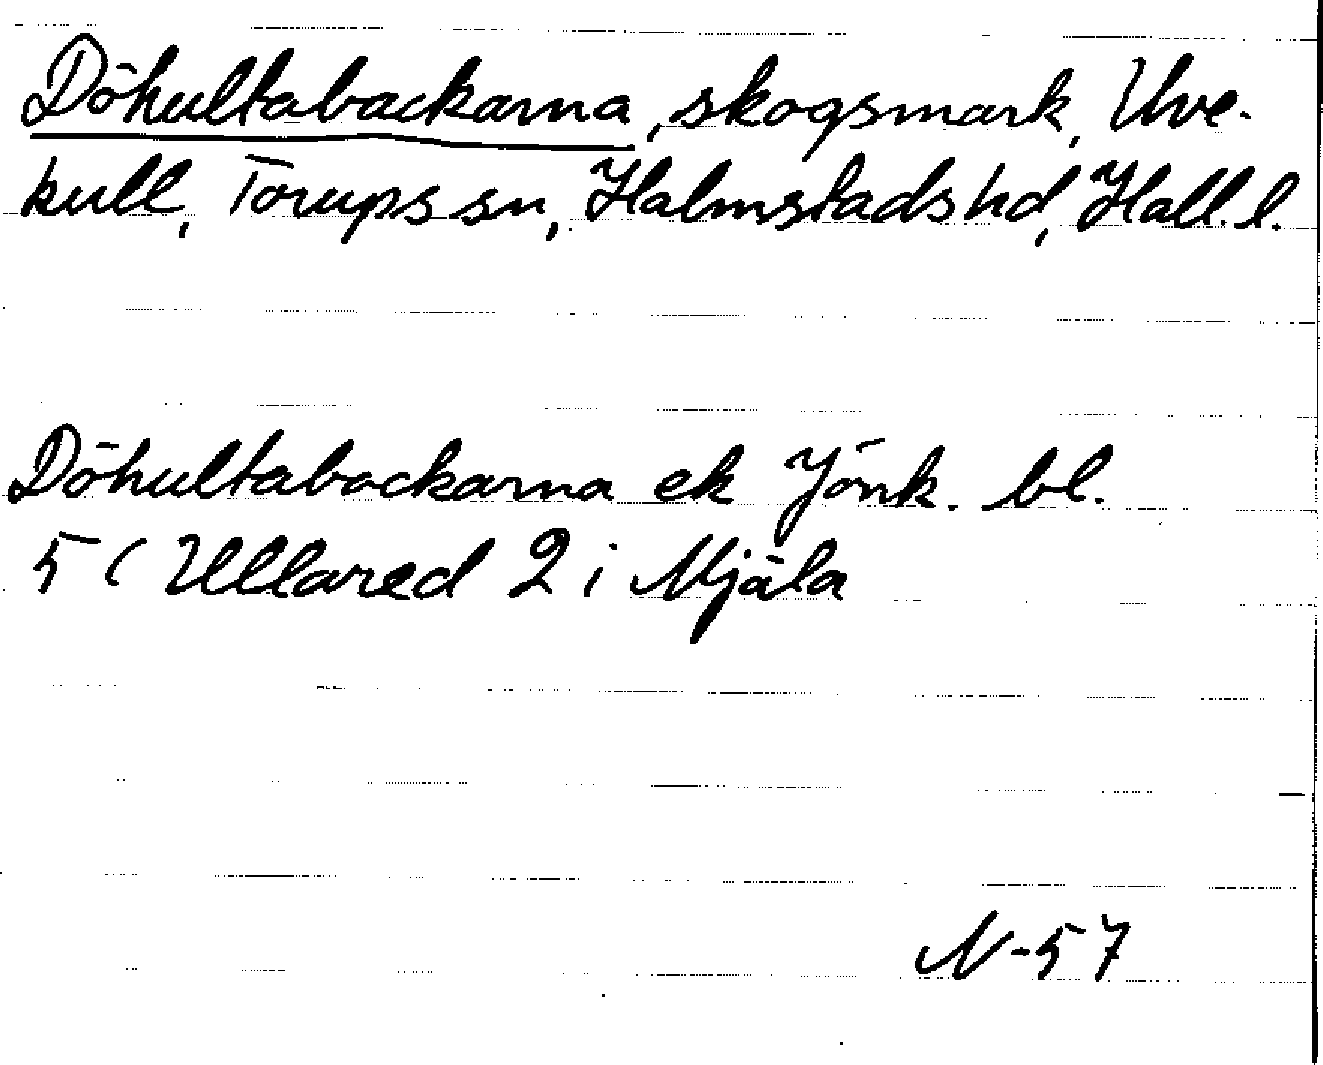 Döhultabackarna, skogsmark, Uve-
kull, Torups sn, Halmstads hd, Hall. l.
Döhultabackarna ek Jönk. bl.
5 (Ullared 2 i Mjäla
N-57